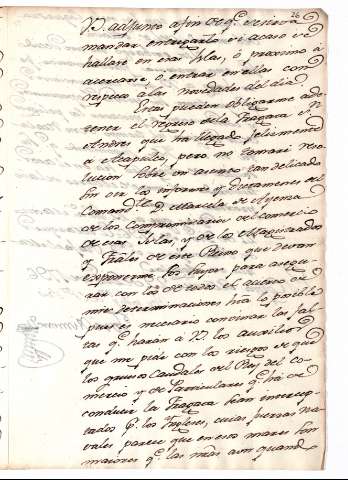 26
V. adjunto a fin de q.e se sirva
mandar entregarlo si acaso se
hallare en esas Islas, ó proximo á
acercarse, ó entrar en ellas con
respecto á las novedades del dia.
Estas pueden obligarme á de-
tener el regreso de la Fragata S.n
Andres que ha llegado felizmente
a Acapulco, pero no tomaré reso-
lucion sobre un asunto tan delicado
sin oir los informes y dictamenes del
Comand.te D.n
de los Compromisarios del comercio
de esas Islas, y de los Magistrados
y Fiscales de este Reyno que devan
exponerme los suyos para asegu-
rar con los de todos el acierto de
mis determinaciones hta lo posible
pues es necesario convinar las fal-
tas q.e harán á V. los auxilios
que me pide con los riesgos de que
los gruesos Caudales del Rey, del co-
mercio y de Particulares q.e ha de
conducir la Fragata sean intercep-
tados p.r los Ingleses, cuias fuerzas na-
vales parece que en esos mares son
maiores q.e las nras aun quando